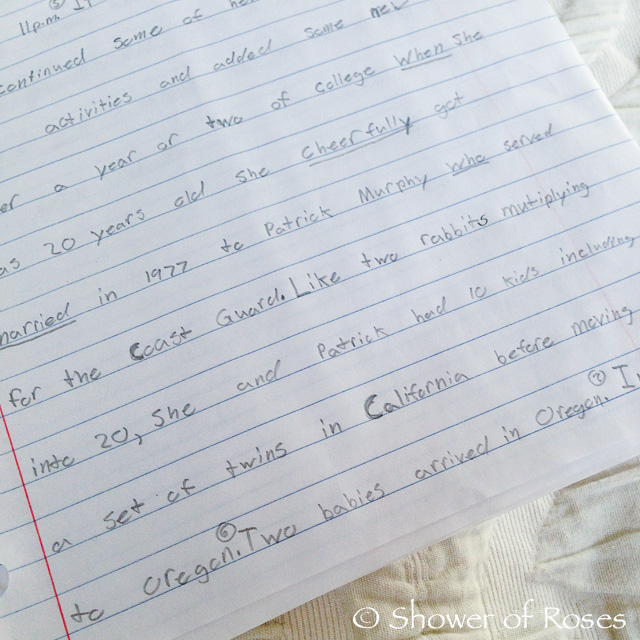 11pm.
continued some of
activities and added some new
a year or two of college When she
as 20 years old she cheerfully got
married in 1977 to Patrick Murphy who served
for the Coast Guard. Like two rabbits mutiplying
into 20, She and Patrick had 10 kids including
a set of twins in California before moving
to Oregon. Two babies arrived in Oregon. I
© Shower of Roses